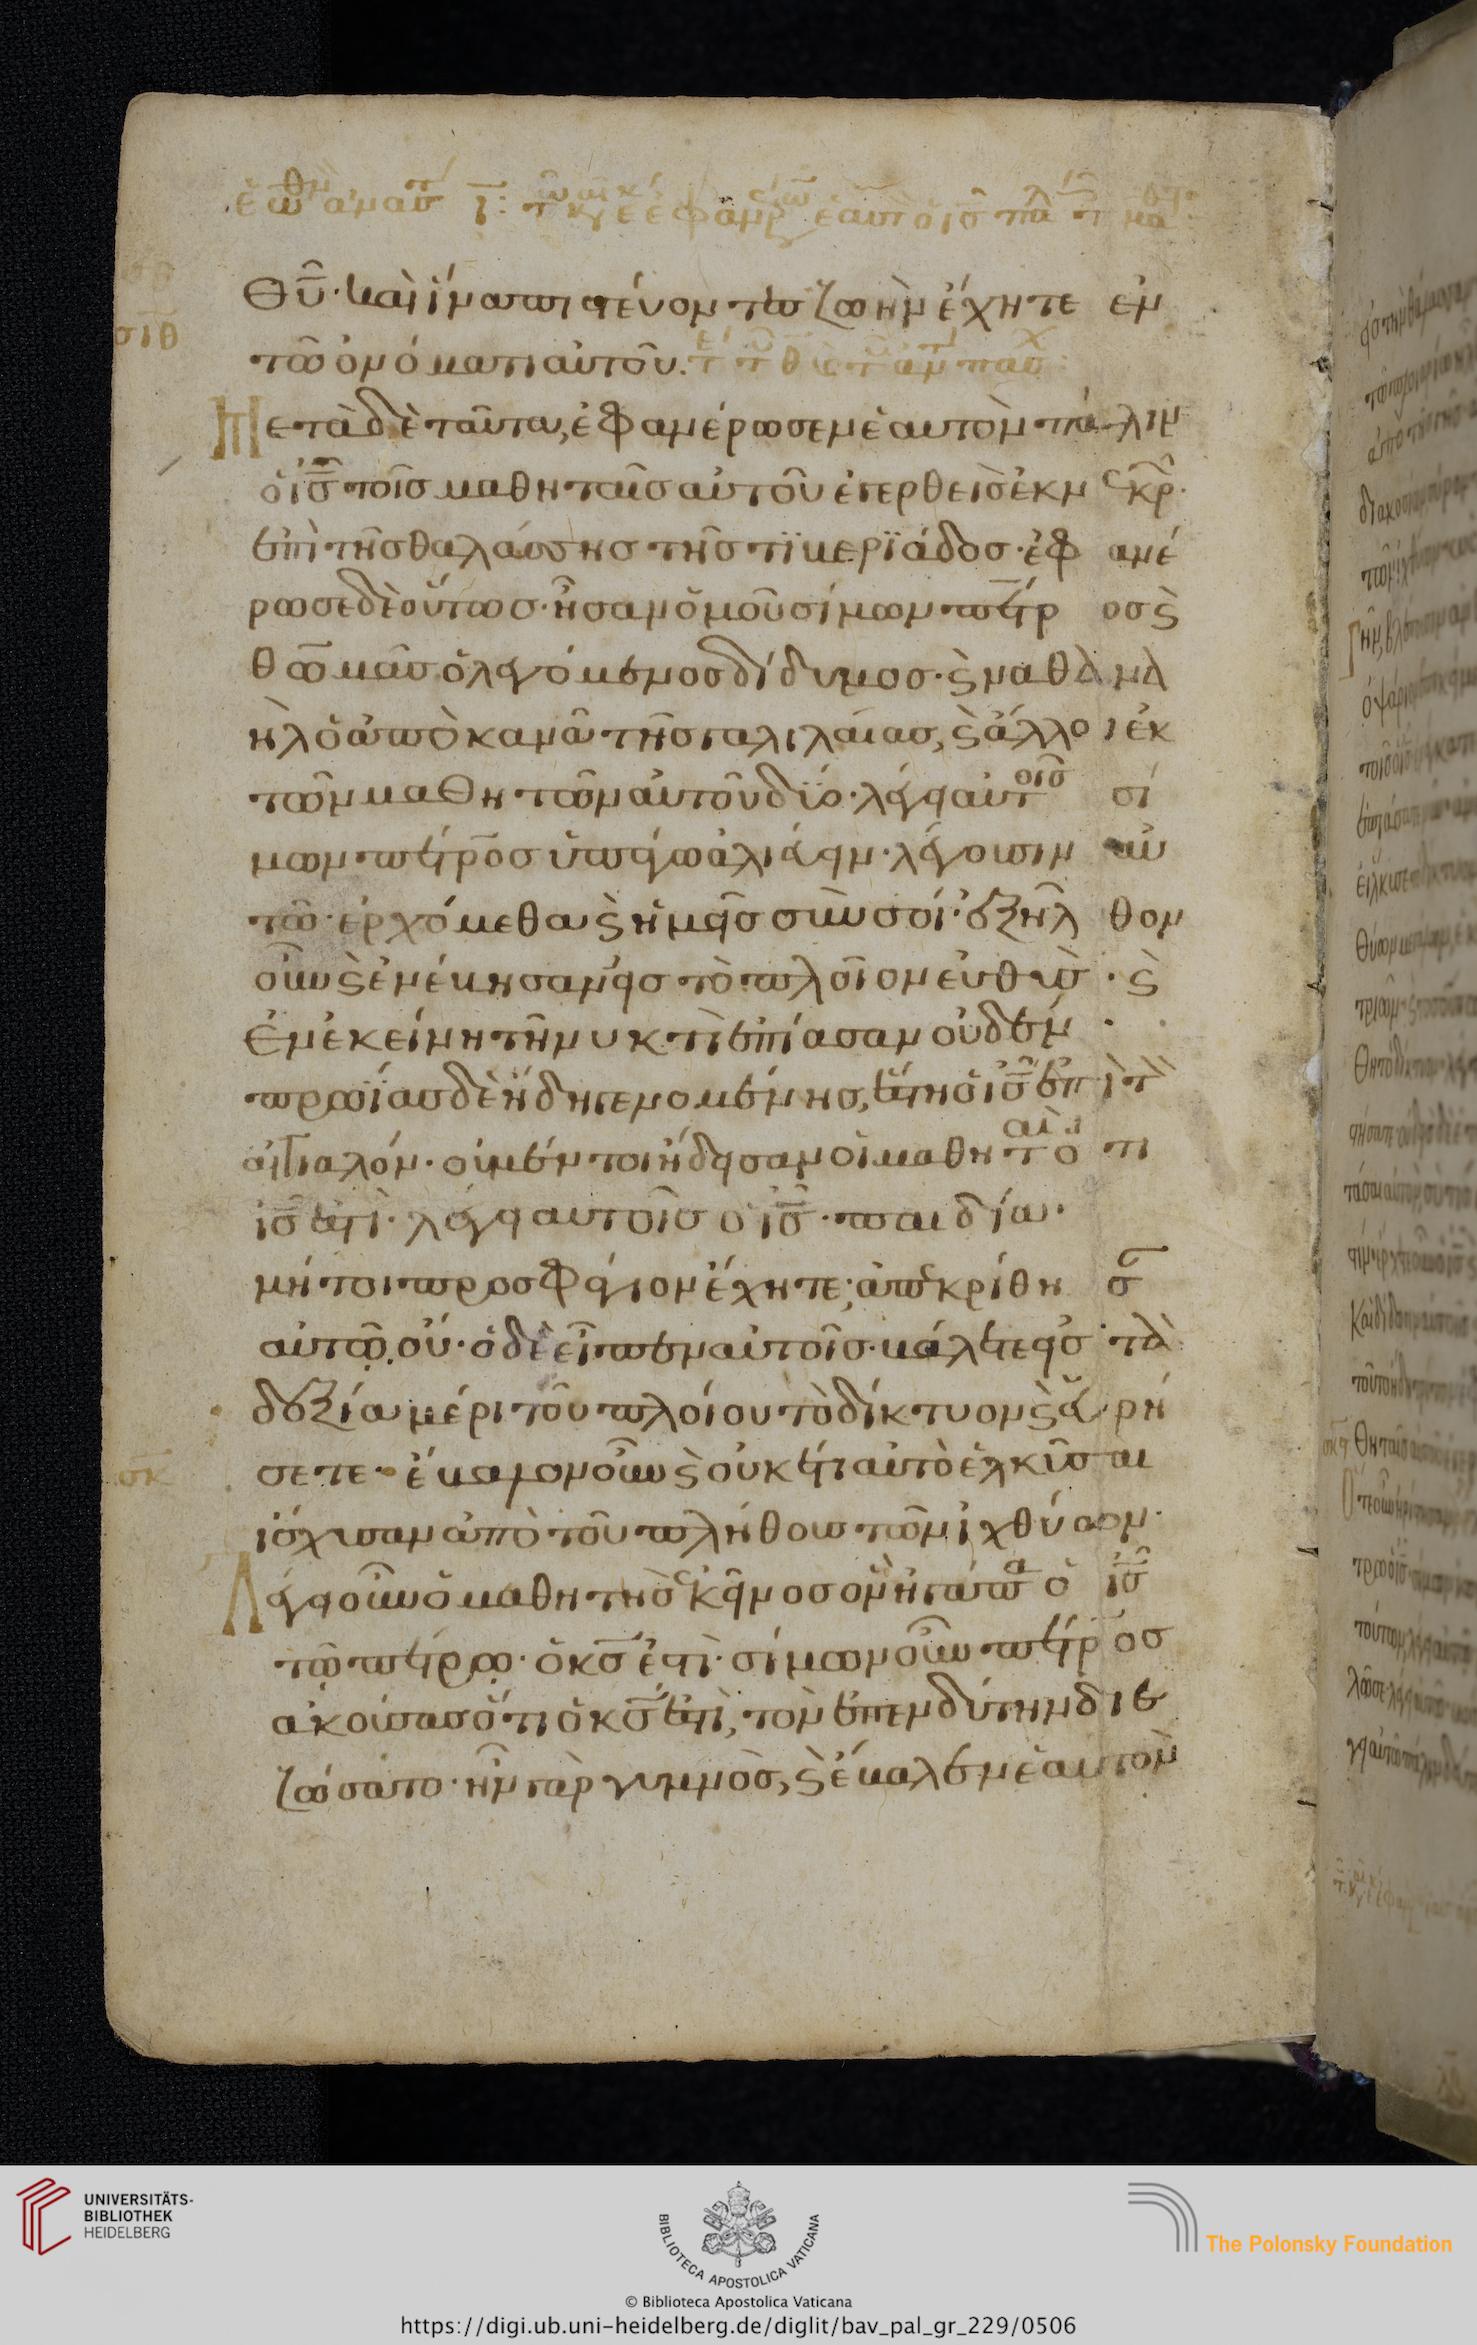 θῦ· καὶ ἵνα πιστεύοντες ζωὴν ἔχητε ἐν
τῶ ὀνόματι αὐτοῦ.
Μετὰ δὲ ταῦτα, ἐφανέρωσεν ἑαυτὸν πάλιν
ὁ ἰς τοῖς μαθηταῖς αὐτοῦ ἐγερθεὶς ἐκ νεκρ.
ἐπὶ τῆς θαλάσσης τῆς τϊβεριάδος· ἐφανέ
ρωσε δὲ οὕτως· ἦσαν ὁμοῦ σίμων πέτρος ϛ
θωμᾶς ὁ λεγόμενος δίδυμος· ϛ ναθανα
ὴλ ὁ ἀπὸ κανᾶ τῆς γαλιλαίας, ϛ ἄλλοι ἐκ
τῶν μαθητῶν αὐτοῦ δύο· λέγει αὐτοῖς σί
μων πέτρος ὑπάγω ἁλιεύειν· λέγουσιν αὐ
τῶ· ἐρχόμεθα ϛ ἡμεῖς σὺν σοί· ἐξῆλθον
οὖν ϛ ἐνέβησαν εἰς τὸ πλοῖον εὐθὺς· ϛ
ἐν ἐκείνη τῆ νυκτὶ ἐπίασαν οὐδέν·
πρωΐας δὲ ἤδη γενομένης, ἔστη ὁ ἰς ἐπὶ τὸν
αἰγιαλόν· οὐ μέντοι ἤδεισαν οἱ μαθηταὶ ὅτι
ἰς ἐστὶ· λέγει αὐτοῖς ὁ ἰς· παιδία·
μή τοι προσφάγιον ἔχητε; ἀπεκρίθησαν
αὐτῶ· οὔ· ὁ δὲ εἶπεν αὐτοῖς· βάλετε εἰς τὰ
δεξιὰ μέρη τοῦ πλοίου τὸ δίκτυον ϛ εὑρή
σετε· ἔβαλον οὖν ϛ οὐκ ἔτι αὐτὸ ἑλκῦσαι
ἴσχυσαν ἀπὸ τοῦ πλήθους τῶν ἰχθύων·
Λέγει οὖν ὁ μαθητὴς ἐκεῖνος ὃν ἠγάπα ὁ ἰς
τῶ πέτρω· ὁ κς ἐστὶ· σίμων οὖν πέτρος
ἀκούσας ὅτι ὁ κς ἐστὶ, τὸν ἐπενδύτην διε
ζώσατο· ἦν γὰρ γυμνὸς, ϛ ἔβαλεν ἑαυτὸν
σιθ
σκ
UNIVERSITÄTS-
BIBLIOTHEK
HEIDELBERG
BIBLIOTECA APOSTOLICA VATICANA
The Polonsky Foundation
© Biblioteca Apostolica Vaticana
https://digi.ub.uni-heidelberg.de/diglit/bav_pal_gr_229/0506